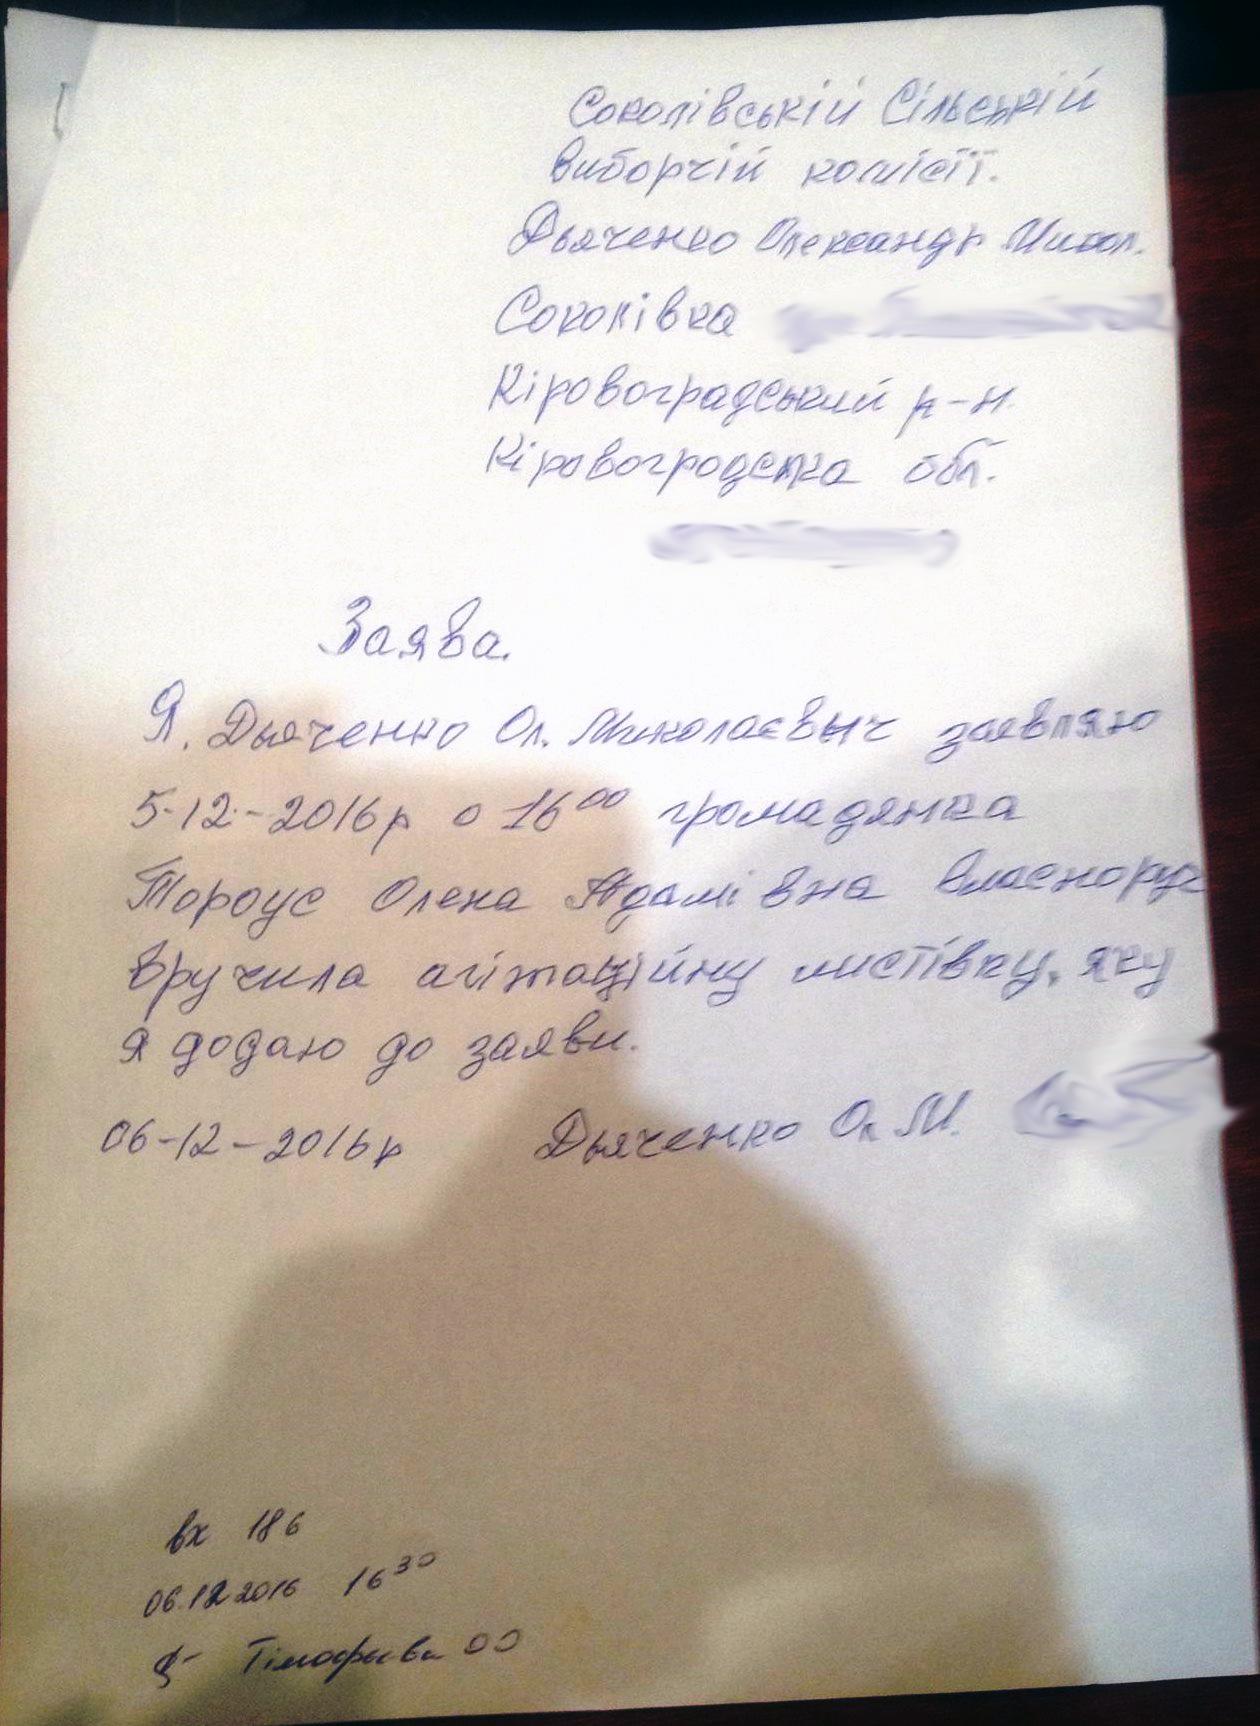 Соколівській Сільській
виборчій комісії.
Дьяченко Олександр Микол.
Соколівка
Кіровоградський р-н.
Кіровогродська обл.
Заява.
Я. Дьяченко Ол. Миколаєвыч заявляю
5-12-2016р о 16⁰⁰ громадянка
Тороус Олена Адамівна власноруч
вручила агітаційну листівку, яку
я додаю до заяви.
06-12-2016р Дьяченко Ол М.
вх 186
06.12 2016 16³⁰
Тімофьєва ОО